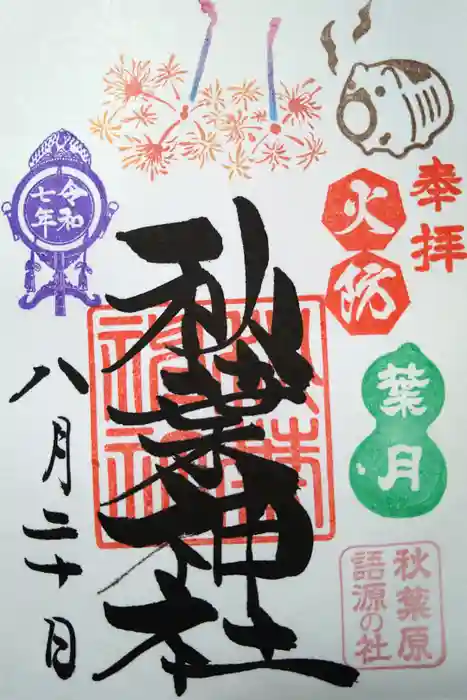 奉拝
火防
葉月
秋葉原
語源の社
秋葉神社
秋葉神社
令和
七年
八月二十日